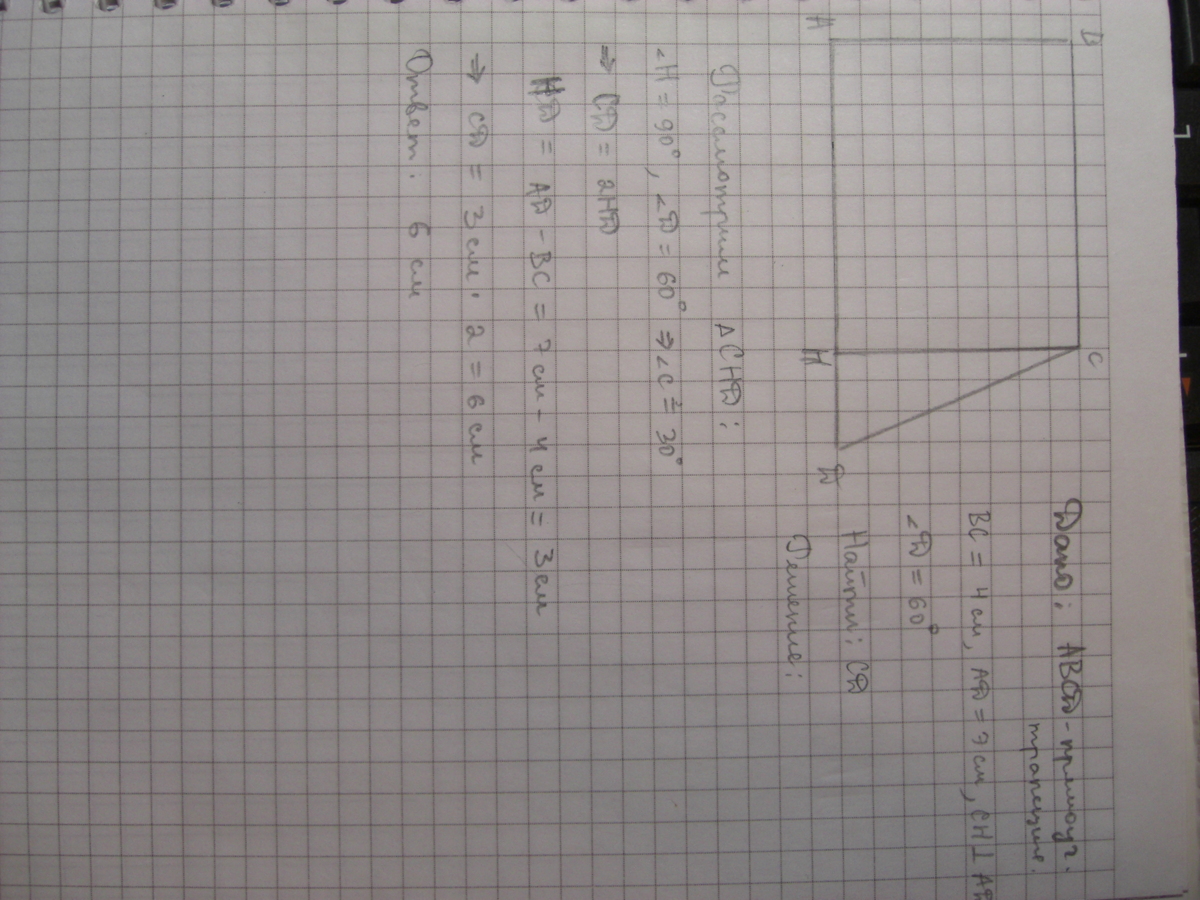 B
C
A
H
D
Дано: ABCD - прямоуг.
трапеция.
BC = 4 см, AD = 7 см, CH⊥AD
∠D = 60°
Найти: CD
Решение:
Рассмотрим ΔCHD:
∠H = 90°, ∠D = 60° ⇒ ∠C = 30°
⇒ CD = 2HD
HD = AD - BC = 7 см - 4 см = 3 см
⇒ CD = 3 см · 2 = 6 см
Ответ: 6 см